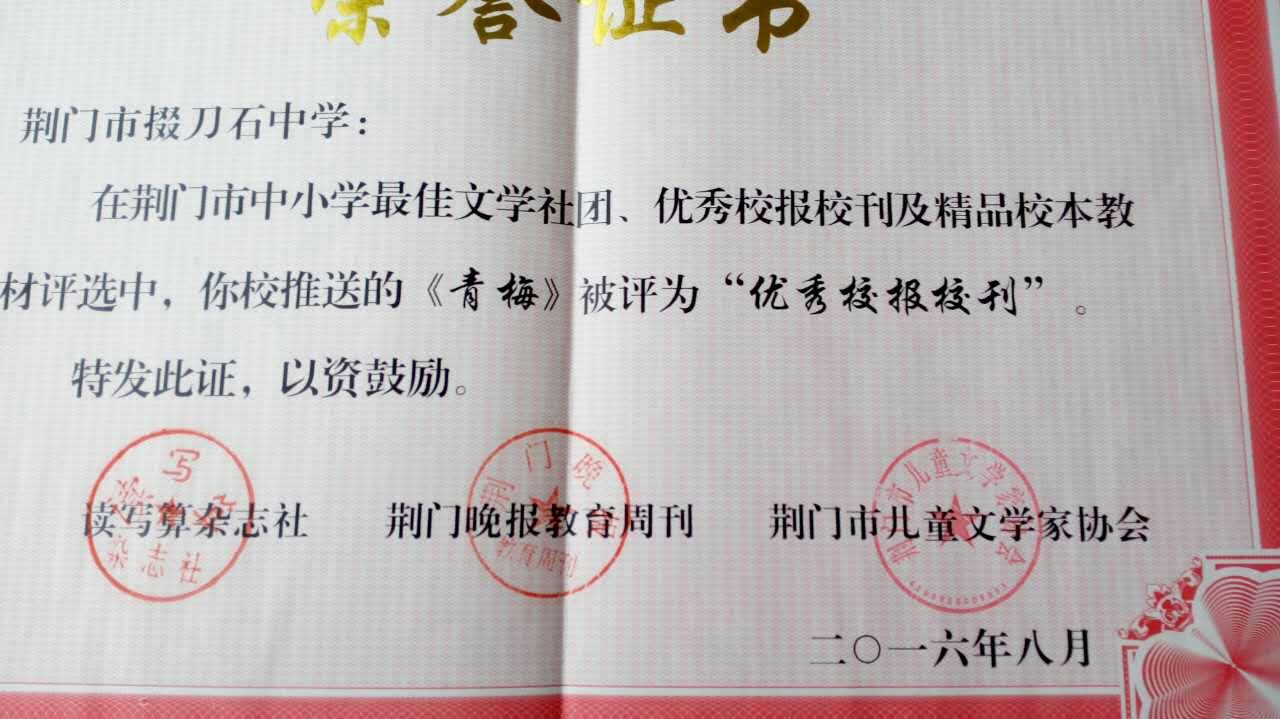 荣誉证书
荆门市掇刀石中学：
在荆门市中小学最佳文学社团、优秀校报校刊及精品校本教
材评选中，你校推送的《青梅》被评为“优秀校报校刊”。
特发此证，以资鼓励。
读写算杂志社 荆门晚报教育周刊 荆门市儿童文学家协会
二〇一六年八月